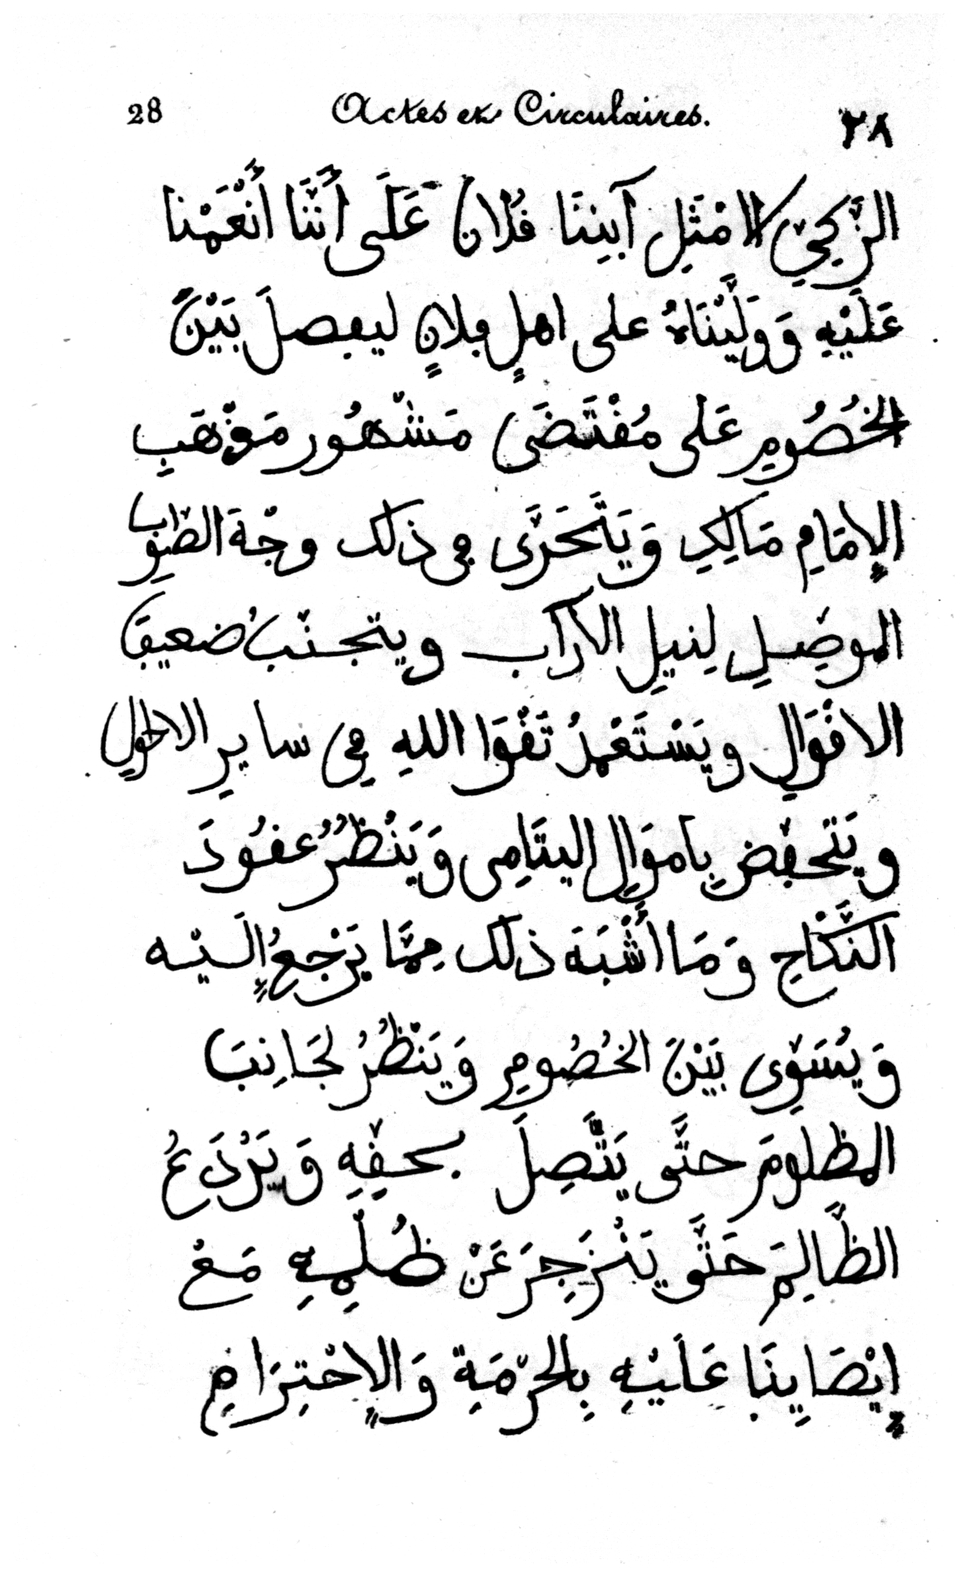 28 Actes et Circulaires. ٢٨
الزَّكِيِّ الامْثَلِ آبنِنَا فُلَانْ عَلَى أَنَّنَا أَنْعَمْنا
عَلَيْهِ وَوَلَّيْنَاهُ على اهلِ فلانٍ ليفصلَ بَيْنَ
الخُصُومِ عَلى مُقْتَضَى مَشْهُور مَذْهَبِ
الإِمَامِ مَالِكِ وَيَتَحَرَّى في ذلك وجْهَ الصَّوَابِ
الموصِلِ لِنيلِ الآرآب ويتجنبُ ضعيفَ
الاقْوَالِ ويَسْتَعْمِلُ تَقْوَا اللهِ في سايرِ الاحوالِ
ويَتَحفضِ بِاموَالِ اليتَامِى وَيَنْظُرُ عقُودَ
النِّكَاحِ وَمَا أَشْبَهَ ذلك مِمَّا يَرْجِعُ إِلَيْه
وَيُسَوِّى بَيْنَ الخُصُومِ وَيَنْظُرُ لجَانِبَ
المظلومَ حتَّى يَتَّصِلَ بحقِّهِ وَيَرْدَعُ
الظَّالِمَ حَتَّى يَنْزَجِرَ عَنْ ظُلْمِهِ مَعْ
إِيْصَايِنَا عَلَيْهِ بِالحُرْمَةِ وَالإِحْتِرَامِ